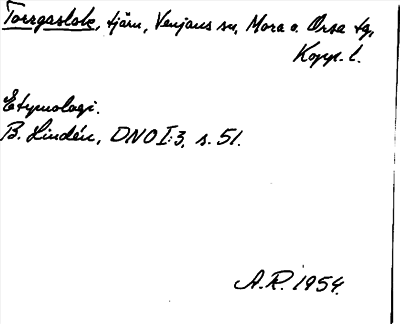 Torrgasloke, tjärn, Venjans sn, Mora o. Orsa tg,
Kopp. l.
Etymologi.
B. Lindén, DNO I:3, s. 51.
A.R. 1954.